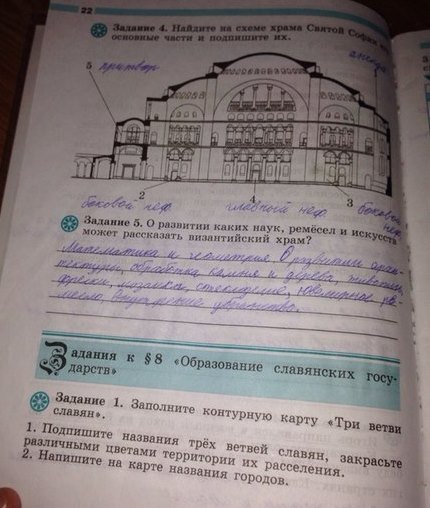 22
Задание 4. Найдите на схеме храма Святой Софии
основные части и подпишите их.
апсида
5 притвор
2
4
3
боковой неф главный неф боковой
неф
Задание 5. О развитии каких наук, ремёсел и искусств
может рассказать византийский храм?
Математика и геометрия. О развитии архи-
тектуры, обработка камня и дерева, живопись,
фрески, мозаика, стеклоделие, ювелирное ре-
месло, внутреннее убранство.
Задания к § 8 «Образование славянских госу-
дарств»
Задание 1. Заполните контурную карту «Три ветви
славян».
1. Подпишите названия трёх ветвей славян, закрасьте
различными цветами территории их расселения.
2. Напишите на карте названия городов.